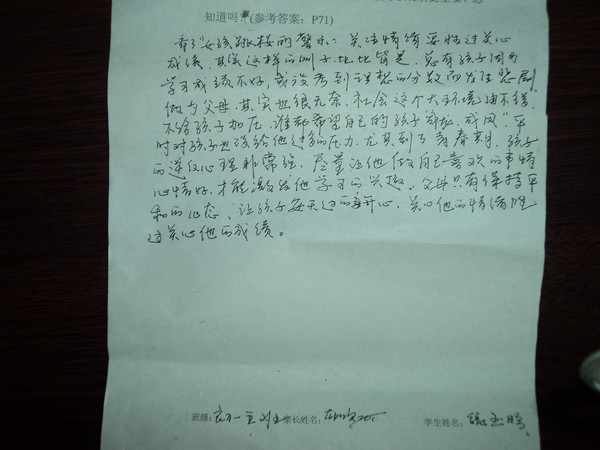 知道吗？(参考答案：P71)
看了"女孩跳楼的警示"关注情绪要胜过关心
成绩。其实这样的例子比比皆是，总有孩子因为
学习成绩不好，或没考到理想的分数而发生悲剧
做为父母其实也很无奈，社会这个大环境由不得
不给孩子加压，谁都希望自己的孩子成龙、成凤"平
时对孩子也该给他过多的压力，尤其到了青春期，孩子
的逆反心理非常强，尽量让他做自己喜欢的事情
心情好，才能激发他学习的兴趣。父母只有保持平
和的心态，让孩子每天过的开心，关心他的情绪胜
过关心他的成绩。
班级： 家长姓名： 学生姓名：